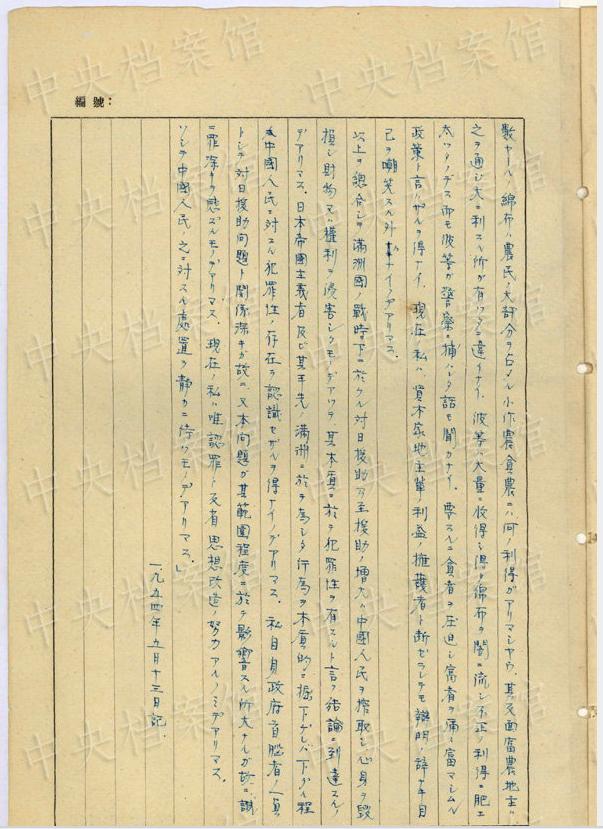 編號:
数ヤール、綿布ハ農民ノ大部分ヲ占ソル小作農貧農ニハ何ノ利得ガアリマシヤウ、其反面富農地主ハ
之ヲ通シ大ニ利スル所ガ有ツタニ違イナイ、彼等ハ大量ニ收得シ得タ綿布ヲ闇ニ流シ不正ノ利得ニ肥エ
太ツタノデス而モ彼等ガ警察ニ捕ハレタ話モ聞カナイ、要スルニ貧者ヲ圧迫シ富者ヲ富マシムル
政策ト言ハザルヲ得ナイ、現在ノ私ハ、資本家地主輩ノ利益ノ擁護者ト断ゼラレテモ辯明ノ辞ナキ自
己ヲ嘲笑スル外ナイノデアリマス、
以上ヲ総合シ満洲國ノ戦時下ニ於ケル対日援助乃至援助ノ増大ハ中國人民ヲ搾取シ心身ヲ毀
損シ財物又ハ權利ヲ侵害シタモノデアツテ其本質ニ於テ犯罪性ヲ有スルト言フ結論ニ到達スルノ
デアリマス、日本帝國主義者及ビ其手先ノ満洲ニ於テ為シタ行為ヲ本質的ニ掘下ゲレバ下ゲル程
中國人民ニ対スル犯罪性ノ存在ヲ認識セザルヲ得ナイノデアリマス、私自身政府首脳者ノ一員
トシテ対日援助問題ト関係深キガ故ニ又本問題ガ其範囲程度ニ於テ影響スル所大ナルガ故ニ謝
罪深キヲ感ズルモノデアリマス、現在ノ私ハ唯認罪ト反省思想改造ノ努力アルノミデアリマス、
ソシテ中國人民ノ之ニ対スル処置ヲ静カニ待ツモノデアリマス、」
一九五四年五月十三日記、
中央档案馆